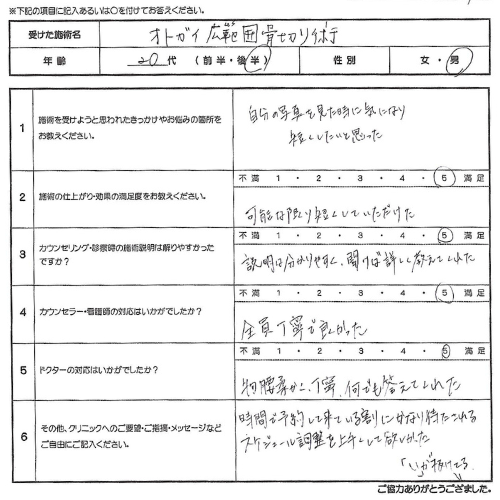 ※下記の項目に記入あるいは○を付けてお答えください。
受けた施術名 オトガイ広範囲骨切り術
年齢 20代 (前半・後半) 性別 女・男
1 施術を受けようと思われたきっかけやお悩みの箇所を
お教えください。
自分の写真を見た時に気になり
短くしたいと思った
2 施術の仕上がり・効果の満足度をお教えください。
不満 1・2・3・4・5 満足
可能な限り短くしていただけた
3 カウンセリング・診察時の施術説明は解りやすかった
ですか?
不満 1・2・3・4・5 満足
説明は分かりやすく、聞けば詳しく教えてくれた
4 カウンセラー・看護師の対応はいかがでしたか?
不満 1・2・3・4・5 満足
全員丁寧で良かった
5 ドクターの対応はいかがでしたか?
不満 1・2・3・4・5 満足
物腰柔らか、丁寧、何でも答えてくれた
6 その他、クリニックへのご要望・ご指摘・メッセージなど
ご自由にご記入ください。
時間で予約して来ている割にかなり待たされる
スケジュール調整を上手くして欲しかった
「い」が抜けてる
ご協力ありがとうございました。